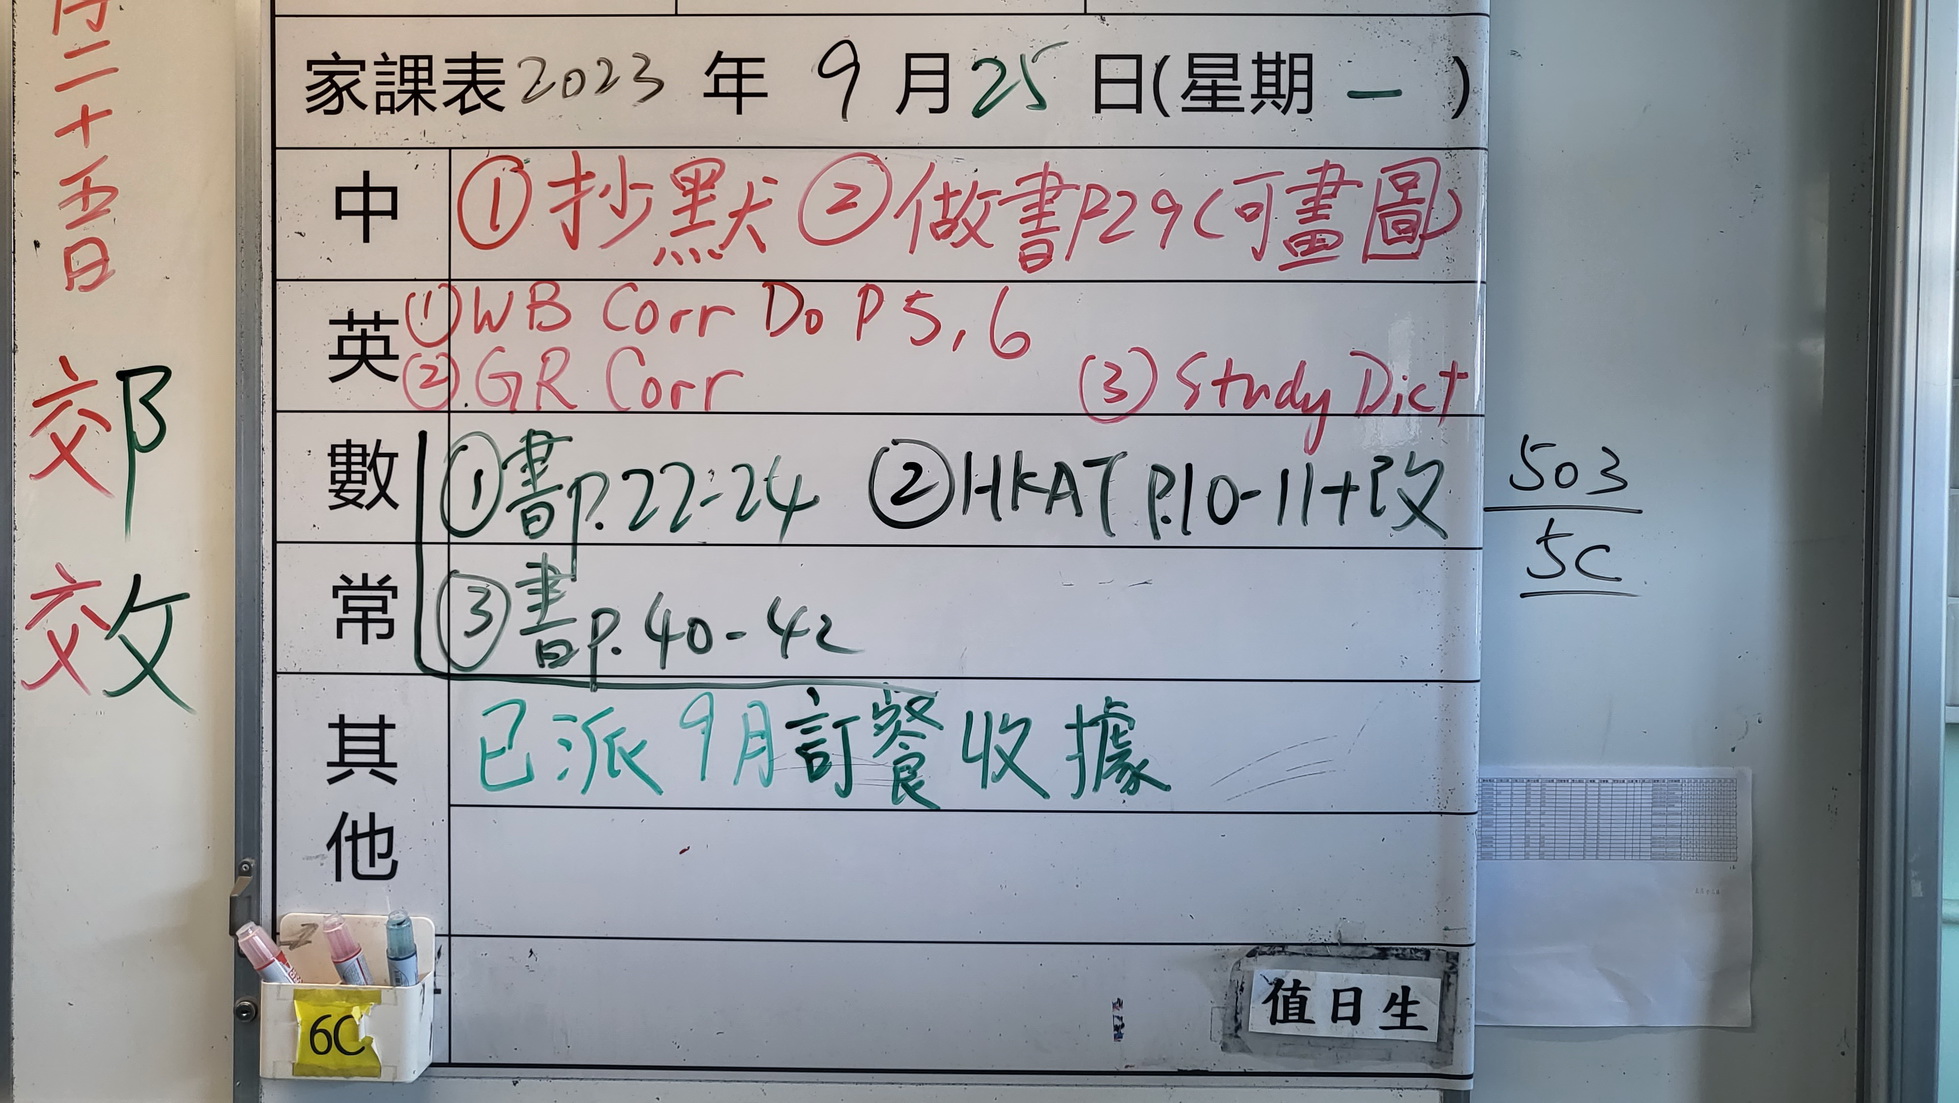 月二十五日
郊
效
家課表2023年9月25日(星期一)
中 ①抄默 ②做書P29(可畫圖)
英 ①WB Corr Do P 5,6
②GR Corr ③Study Dict
數 ①書p.22-24 ②HKAT p.10-11+改
常 ③書p.40-42
其他 已派9月訂餐收據
503
5C
值日生
6C